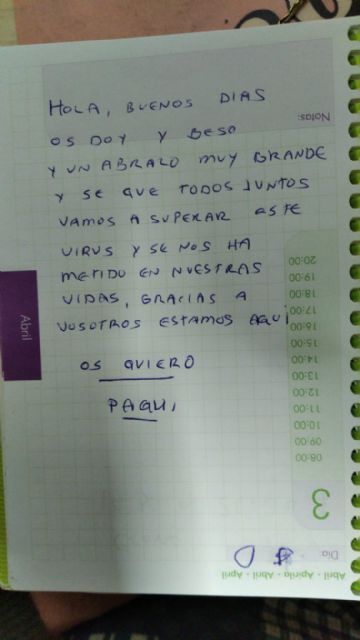 HOLA, BUENOS DIAS
OS DOY Y BESO
Y UN ABRAZO MUY GRANDE
Y SE QUE TODOS JUNTOS
VAMOS A SUPERAR ESTE
VIRUS Y SE NOS HA
METIDO EN NUESTRAS
VIDAS, GRACIAS A
VOSOTROS ESTAMOS AQUI
OS QUIERO
PAQUI
Notas:
20:00
19:00
18:00
17:00
16:00
15:00
14:00
13:00
12:00
11:00
10:00
09:00
08:00
Abril
3
Dia:
Abril - Abril - Apirila - Abril - April